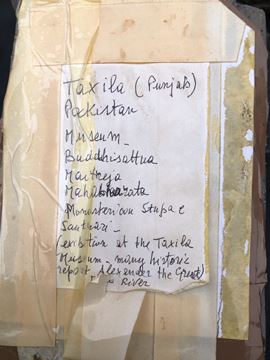 Taxila (Punjab)
Pakistan
Museum -
Buddhisattva
Maitreja
Mahabharata
Monastericon Stupa e
Santuari -
(exibition at the Taxila
Museum - many historic
report Alexander the Great)
River